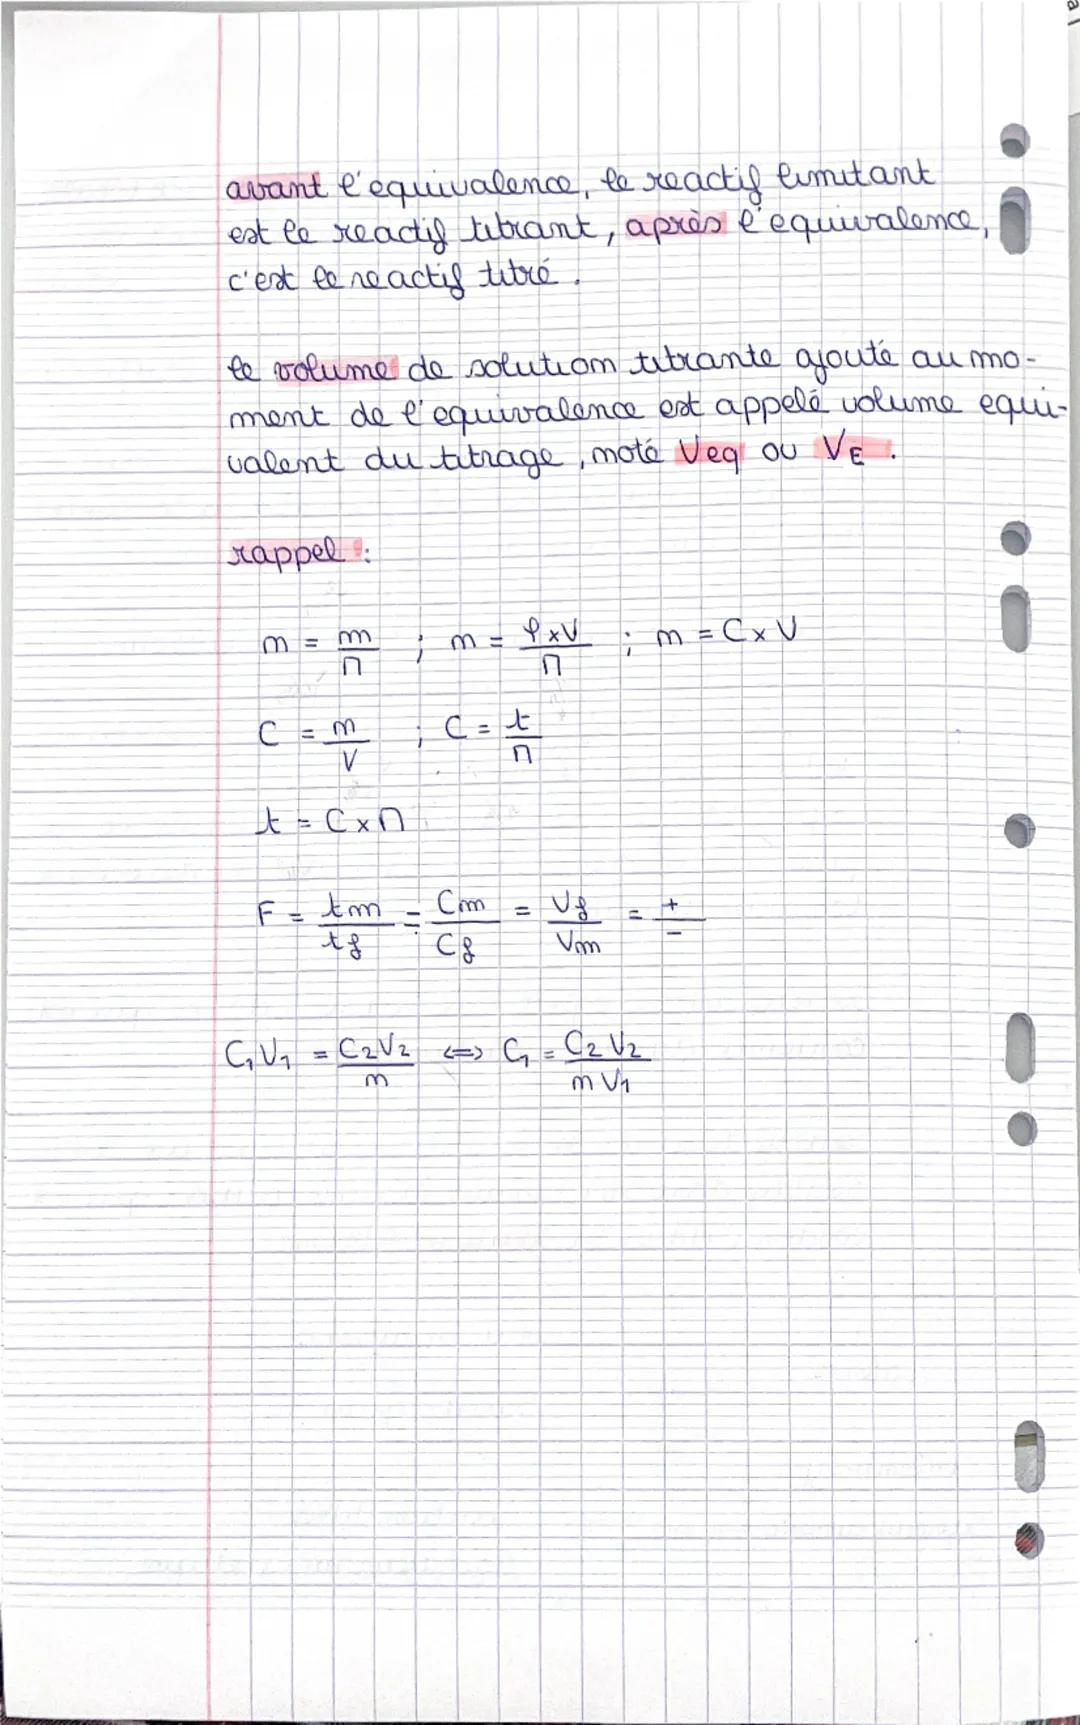 avant l'equivalence, le reactif limitant
est le reactif titrant, après l'equivalence,
c'est le reactif titré.
le volume de solution titrante ajouté au mo-
ment de l'equivalence est appelé volume equi-
valent du titrage, noté Veq ou VE.
rappel :
n = m/M ; n = ρ×V/M ; n = C×V
C = n/V ; C = t/M
t = C×M
F = tm/tf = Cm/Cf = Vf/Vm = +/-
C₁V₁ = C₂V₂/n <=> C₁ = C₂V₂/nV₁